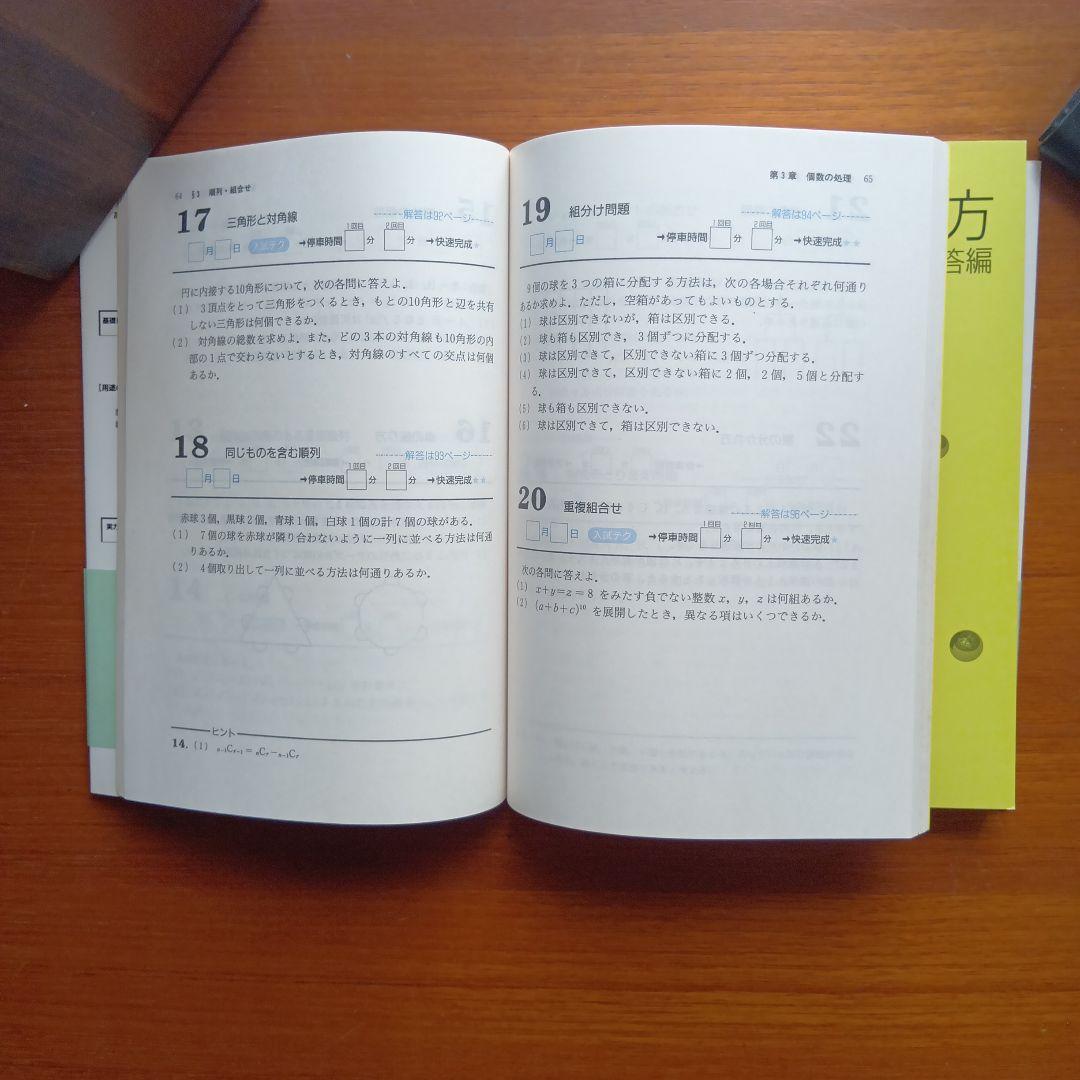 64 §3 順列・組合せ
17 三角形と対角線 解答は92ページ
月 日 入試テク →停車時間 1回目 分 2回目 分 →快速完成★
円に内接する10角形について，次の各問に答えよ．
(1) 3頂点をとって三角形をつくるとき，もとの10角形と辺を共有
しない三角形は何個できるか．
(2) 対角線の総数を求めよ．また，どの3本の対角線も10角形の内
部の1点で交わらないとするとき，対角線のすべての交点は何個
あるか．
18 同じものを含む順列 解答は93ページ
月 日 →停車時間 1回目 分 2回目 分 →快速完成★★
赤球3個，黒球2個，青球1個，白球1個の計7個の球がある．
(1) 7個の球を赤球が隣り合わないように一列に並べる方法は何通
りあるか．
(2) 4個取り出して一列に並べる方法は何通りあるか．
ヒント
14. (1) ₙ₋₁Cᵣ₋₁＝ₙCᵣ−ₙ₋₁Cᵣ
第3章 個数の処理 65
19 組分け問題 解答は94ページ
月 日 →停車時間 1回目 分 2回目 分 →快速完成★★
9個の球を3つの箱に分配する方法は，次の各場合それぞれ何通り
あるか求めよ．ただし，空箱があってもよいものとする．
(1) 球は区別できないが，箱は区別できる．
(2) 球も箱も区別でき，3個ずつに分配する．
(3) 球は区別できて，区別できない箱に3個ずつ分配する．
(4) 球は区別できて，区別できない箱に2個，2個，5個と分配す
る．
(5) 球も箱も区別できない．
(6) 球は区別できて，箱は区別できない．
20 重複組合せ 解答は96ページ
月 日 入試テク →停車時間 1回目 分 2回目 分 →快速完成★
次の各問に答えよ．
(1) x+y=z=8 をみたす負でない整数 x，y，z は何組あるか．
(2) (a+b+c)¹⁰ を展開したとき，異なる項はいくつできるか．
方
答編